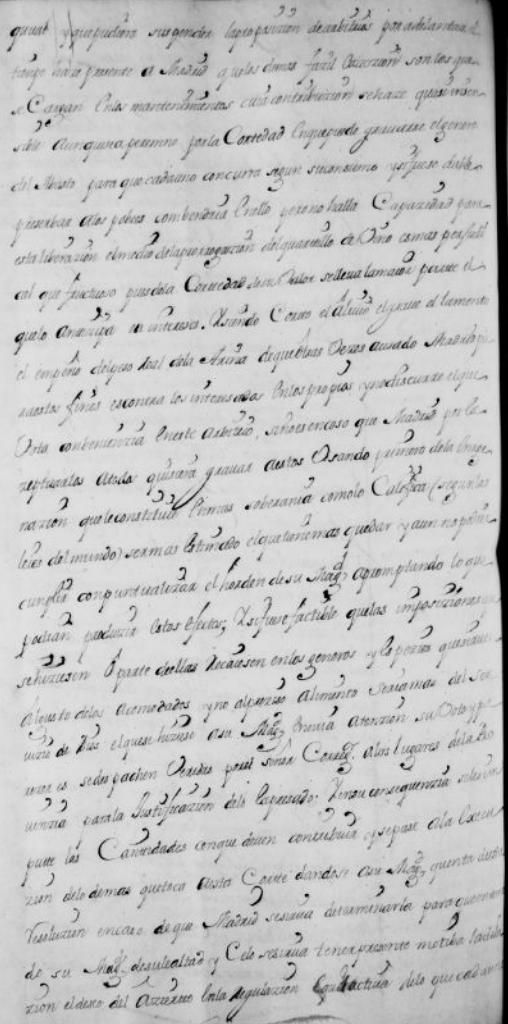 y que pudiera sugerir la proposizion de arbitrios para adelantar el
tiempo haze presente a Madrid que los demas facil execuzion son los que
se Cargan en los mantenimientos cuia contribuzion se haze quasi insen
sible aunque sea perenne por la Cortedad en que puede gravarse el genero
del Abasto para que cada uno concurra segun su consumo y si fuese dable
preserbar a los pobres combendria en ello pero no halla Capazidad para
esta liberazion el medio de la prorrogazion del quartillo de Vino es mas perjudi
cial que fructuoso pues de la Cortedad de su Valor se lleva la maior parte el
que lo Antizipa en intereses. Usando Como el alivio el grave al
el empeño del peso Real de la Arina de que otras Vezes a usado Madrid p
a estos fines es contra los interesados en los propios y no discurre el que
esta combenienzia en este Arbitrio, sino es en caso que Madrid por la
a todo quisiera gravar a estos Usando primero de la
nazion que le constituie en mas soberania como lo Califica (segun las
leies del mundo) ser mas estimado el que tiene mas que dar y aun no podria
cumplir con puntualizar el horden de su Magd apromptando lo que
podrian produzir estos efectos; Y si fuese factible que las imposiziones
se hiziesen o parte de ellas recaiesen en los generos y
al gusto de los acomodados y no al preziso Alimento seria mas del ser
vizio de Dios el que se hiziese a su Magd Previa Atenzion su Voto
es se despachen Veredas por el señor Corregr a los lugares de la Pro
vinzia para la Justificazion de lo Expresado; Y en su consequenzia se les im
pute las Cantidades con que deven contribuir y se pase a la Execu
zion de lo demas que toca a esta Corte dandose a su Magd quenta de esta
resoluzion en caso de que Madrid se sirva determinarla para que en
de su Magd de su lealtad y Celo se sirva tener presente
zion el deseo del Azierto en la regulazion equitactiva de lo que cada